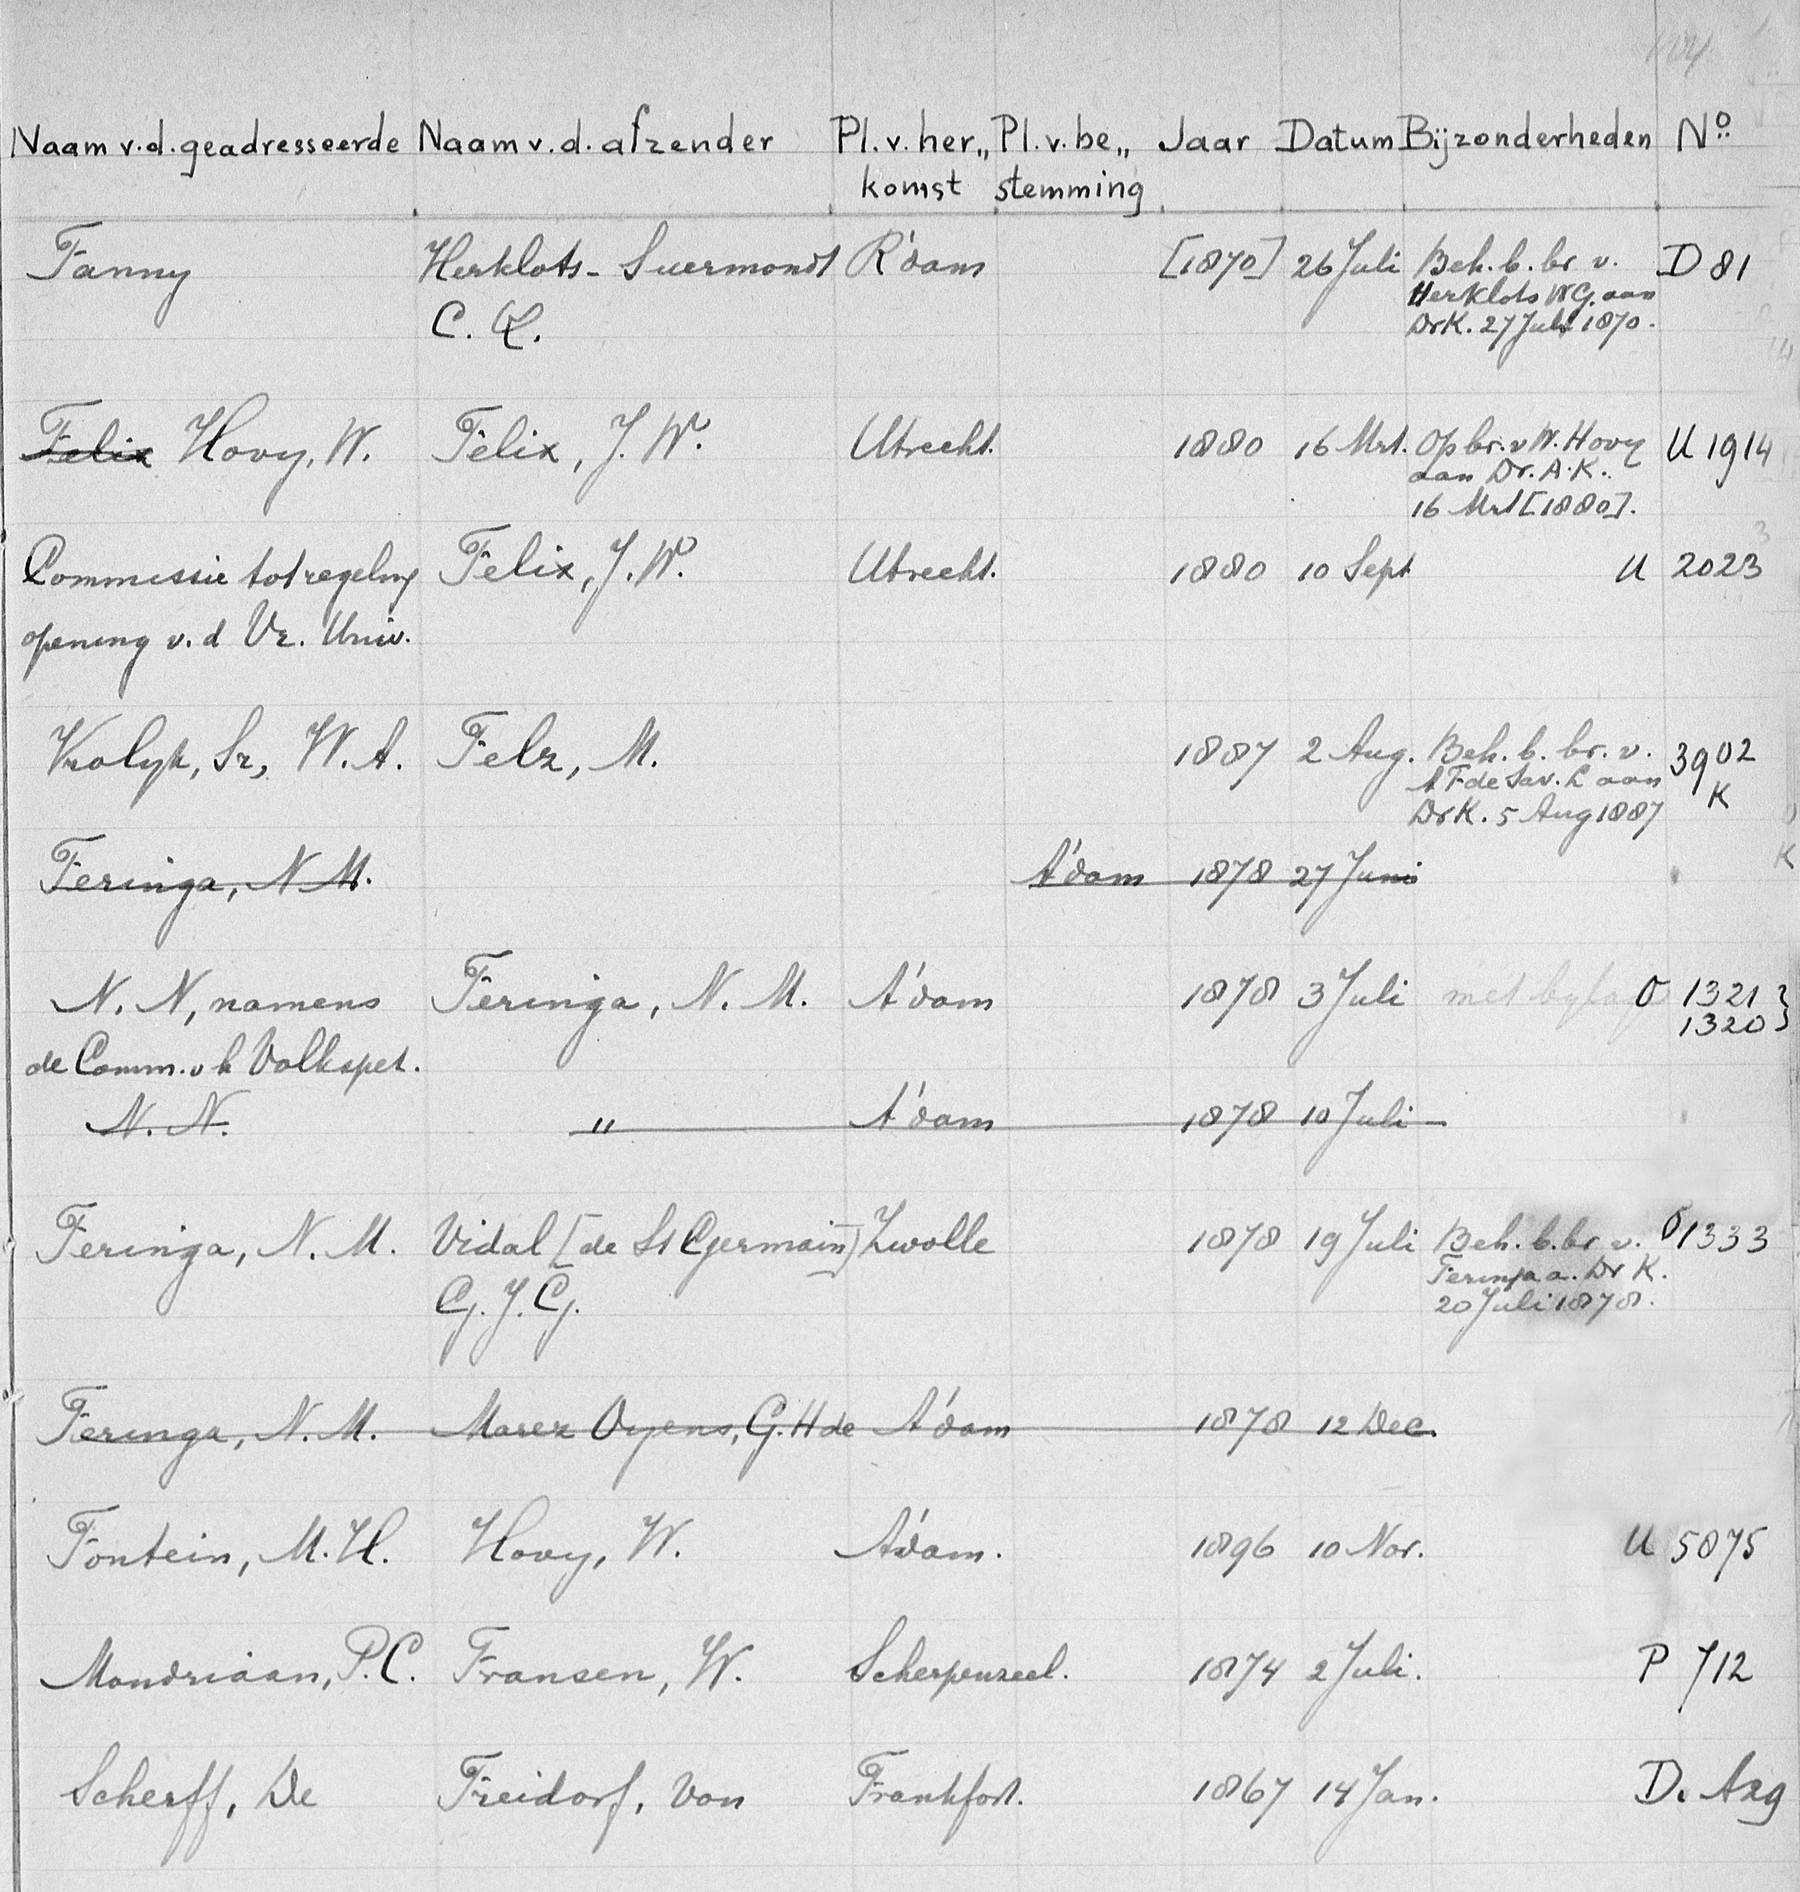 Naam v.d. geadresseerde Naam v.d. afzender Pl. v. her„ Pl. v. be„ Jaar Datum Bijzonderheden No
komst stemming
Fanny Herklots - Suermondt R'dam [1870] 26 Juli Beh. b. br v. D 81
Herklots W G. aan
C. L. Dr K. 27 Juli 1870.
Felix Hovy, W. Felix, J. W. Utrecht. 1880 16 Mrt. Op br. v W. Hovy U 1914
aan Dr. A. K.
16 Mrt [1880].
Commissie tot regeling Felix, J. W. Utrecht. 1880 10 Sept U 2023
opening v. d Vr. Univ.
Vrolyk, Sr, W. A. Felz, M. 1887 2 Aug. Beh. b. br. v. 3902
A F de Sav. L aan K
Dr K. 5 Aug 1887
Feringa, N M. A'dam 1878 27 Juni
N. N, namens Feringa, N. M. A'dam 1878 3 Juli met bylage O 1321 }
1320
de Comm. v h Volkspet.
N. N. „ A'dam 1878 10 Juli
Feringa, N. M. Vidal [de St Germain] Zwolle 1878 19 Juli Beh. b. br v. O 1333
Feringa a. Dr K.
G. J. G. 20 Juli 1878.
Feringa, N. M. Marez Oyens, G. H de A'dam 1878 12 Dec.
Fontein, M. H. Hovy, W. A'dam. 1896 10 Nov. U 5875
Mondriaan, P. C. Fransen, W. Scherpenzeel. 1874 2 Juli. P 712
Scherff, De Freidorf, von Frankfort. 1867 14 Jan. D. A29